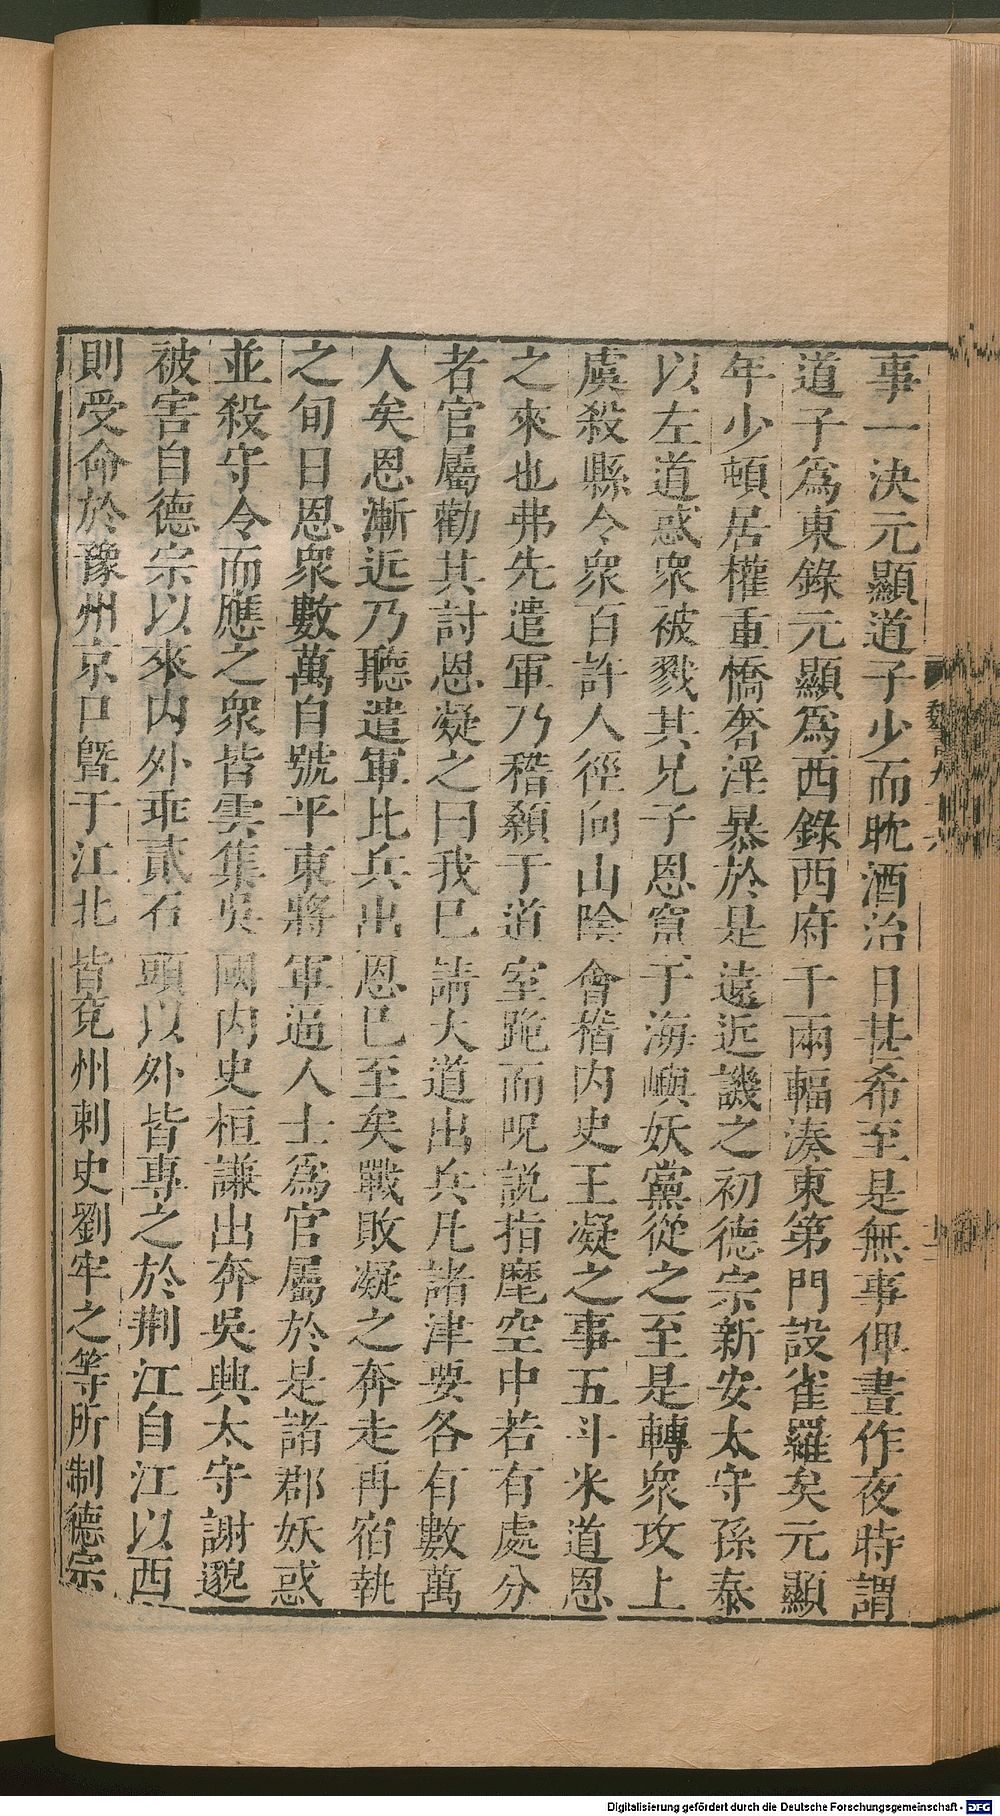 事一決元顯道子少而耽酒治日甚希至是無事俾晝作夜時謂
道子爲東錄元顯爲西錄西府千兩輻湊東第門設雀羅矣元顯
年少頓居權重憍奢淫暴於是遠近譏之初德宗新安太守孫泰
以左道惑眾被戮其兄子恩竄于海嶼妖黨從之至是轉眾攻上
虞殺縣令眾百許人徑向山陰會稽內史王凝之事五斗米道恩
之來也弗先遣軍乃稽顙于道室跪而呪說指麾空中若有處分
者官屬勸其討恩凝之曰我已請大道出兵凡諸津要各有數萬
人矣恩漸近乃聽遣軍比兵出恩已至矣戰敗凝之奔走再宿執
之旬日恩眾數萬自號平東將軍逼人士爲官屬於是諸郡妖惑
並殺守令而應之眾皆雲集吳國內史桓謙出奔吳興太守謝邈
被害自德宗以來內外乖貳石頭以外皆專之於荆江自江以西
則受命於豫州京口暨于江北皆兗州刺史劉牢之等所制德宗
Digitalisierung gefördert durch die Deutsche Forschungsgemeinschaft - DFG